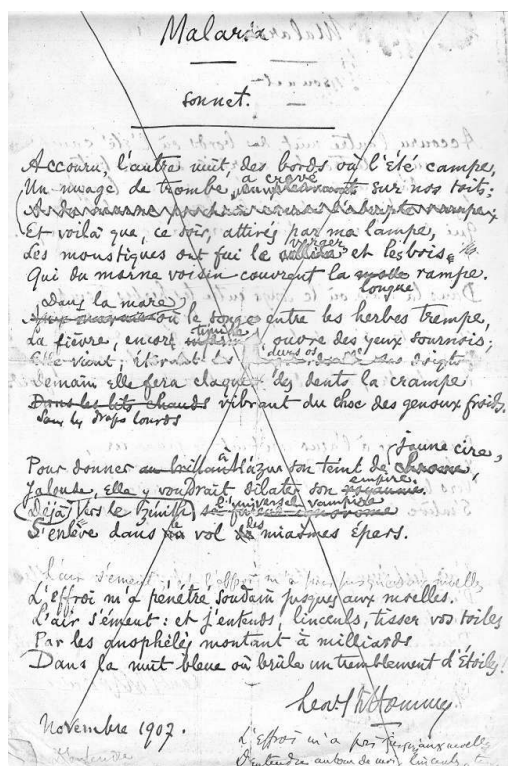 Malaria
Sonnet.
Accouru, l'autre nuit, des bords où l'été campe,
a crevé
Un nuage de trombe sur nos toits;
Et voilà que, ce soir, attirés par ma lampe,
verger
Les moustiques ont fui le et les bois
Qui du morne voisin couvrent la rampe.
longue
Dans la mare
où le songe entre les herbes trempe,
timide
La fièvre, encore ouvre des yeux sournois;
Elle vient; étirant les doigts
Demain elle fera claquer des dents la crampe
Dans les lits chauds vibrant du choc des genoux froids.
Sous les draps lourds
jaune cire,
Pour donner à l'azur son teint de
empire.
Jalouse, Elle y voudrait dilater son royaume.
l'universel vampire
Déjà vers le Zénith
S'enlève dans le vol des miasmes épars.
L'Effroi m'a pénétré soudain jusques aux moelles.
L'air s'émeut: et j'entends, linceuls, tisser vos toiles
Par les anophélès montant à milliards
Dans la nuit bleue où brûle un tremblement d'Étoiles!
Novembre 1907.
L'Effroi m'a jusqu'aux moelles
D'entendre autour de moi, linceuls,